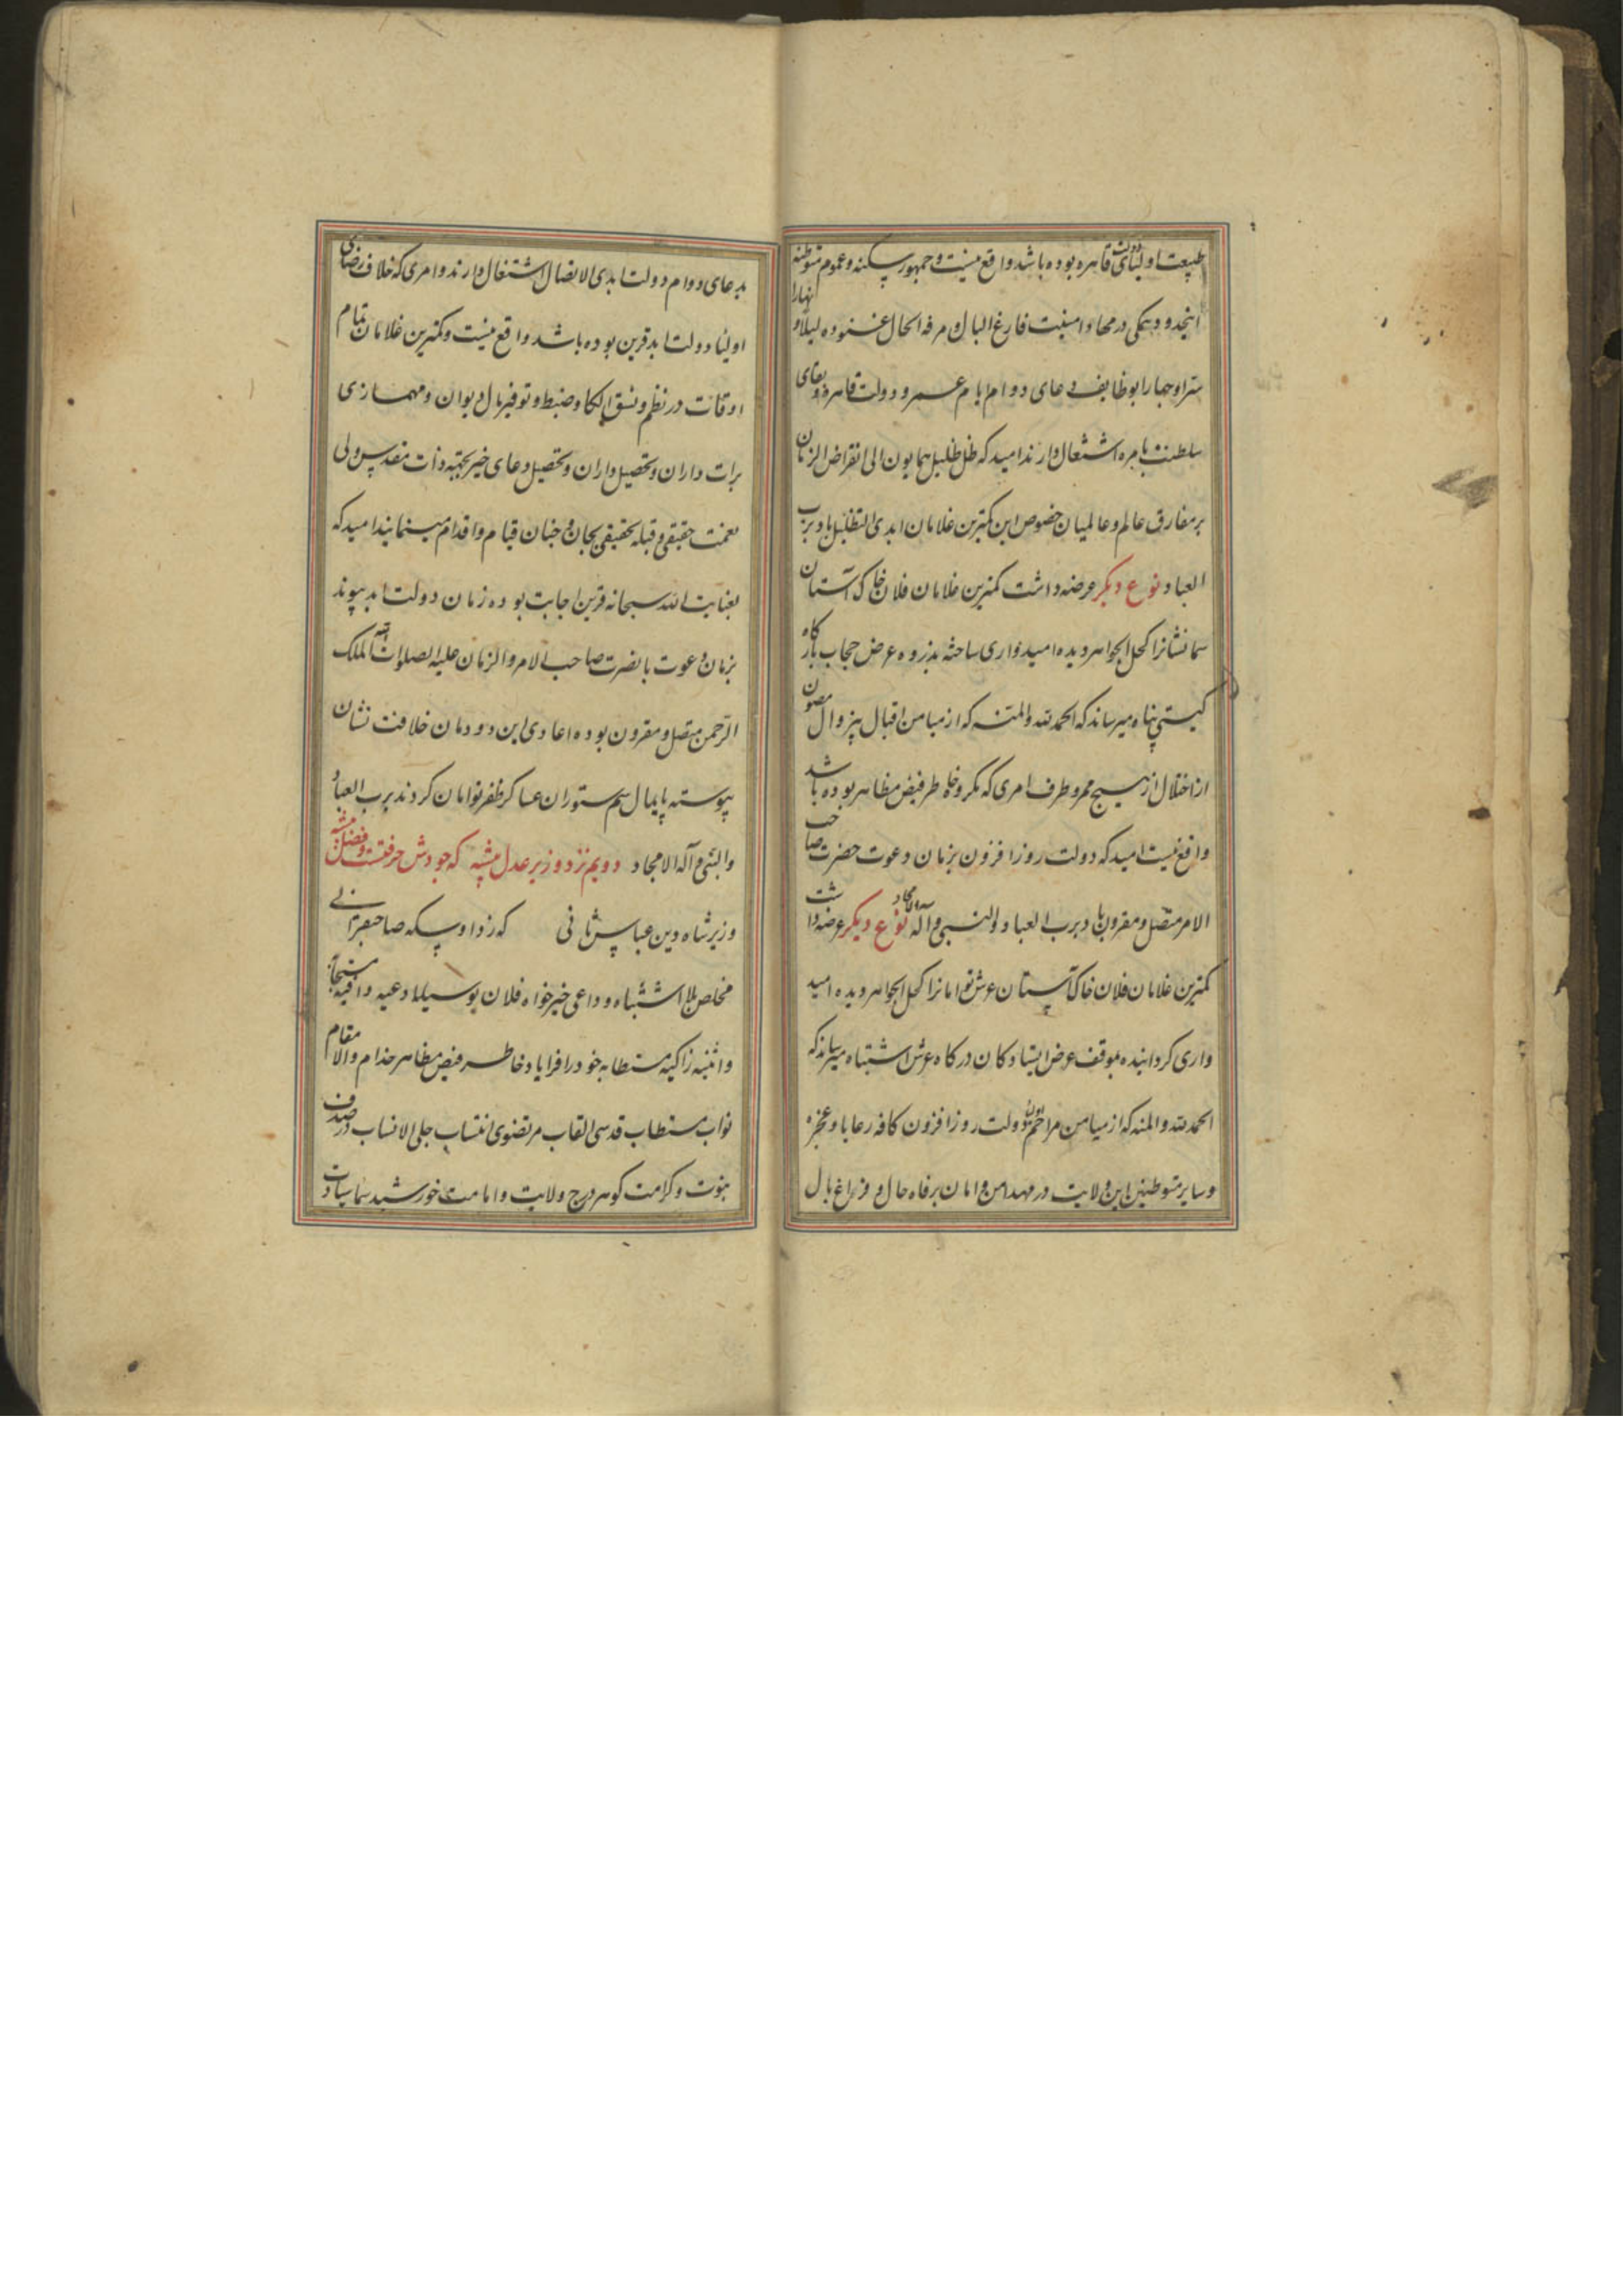 طبیعت اولیای دولت قاهره بوده باشد واقع نیست و جمهور سکنه و عموم متوطنه
اینحدود همگی در مهاد امنیت فارغ البال و مرفه الحال غنوده لیلاً و نهارا
سرا و جهارا بوظایف دعای دوام ایام عمر و دولت قاهره و بقای
سلطنت باهره اشتغال دارند امید که ظل ظلیل همایون الی انقراض الزمان
بر مفارق عالم و عالمیان خصوص این کمترین غلامان ابدی التظلیل باد برب
العباد نوع دیگر عرضه داشت کمترین غلامان فلان خاک آستان
سما نشانرا کحل الجواهر دیده امیدواری ساخته بذروه عرض حجاب بارگاه
گیتی پناه میرساند که الحمد لله والمنة که از میامن اقبال بیزوال مصون
از اختلال از هیچ ممر و طرف امری که مکروه خاطر فیض مظاهر بوده باشد
واقع نیست امید که دولت روز افزون بزمان دعوت حضرت صاحب
الامر متصل و مقرون باد برب العباد والنبی و آله الامجاد نوع دیگر عرضه داشت
کمترین غلامان فلان خاک آستان عرش توامانرا کحل الجواهر دیده امید
واری گردانیده بموقف عرض ایستادگان درگاه عرش اشتباه میرساند که
الحمد لله والمنه که از میامن مراحم دولت روز افزون کافه رعایا و عجزه
و سایر متوطنین این ولایت در مهد امن و امان برفاه حال و فراغ بال
بدعای دوام دولت ابدی الاتصال اشتغال دارند و امری که خلاف رضای
اولیاء دولت ابد قرین بوده باشد واقع نیست و کمترین غلامان تمام
اوقات در نظم و نسق الکا و ضبط و توفیر مال دیوان و مهمسازی
برات داران و تحصیل داران و تحصیل دعای خیر بجهة ذات مقدس ولی
نعمت حقیقی و قبله تحقیقی بجان و جنان قیام و اقدام مینمایند امید که
بعنایت الله سبحانه قرین اجابت بوده زمان دولت ابد پیوند
بزمان دعوت با نصرت صاحب الامر والزمان علیه الصلوات الله الملک
الرحمن متصل و مقرون بوده اعادی این دودمان خلافت نشان
پیوسته پایمال سم ستوران عساکر ظفر توامان گردند برب العباد
والنبی و آله الامجاد دویم نزد وزیر عدل پیشه که جودش حرفتست و فضل پیشه
وزیر شاه دین عباس ثانی که زد او سکه صاحبقرانی
مخلص بلا اشتباه و داعی خیرخواه فلان بوسیله ادعیه وافیه مستجابه
و اثنیه زاکیه مستطابه خود را فرایاد خاطر فیض مظاهر خدام والا مقام
نواب مستطاب قدسی القاب مرتضوی انتساب جلی الانساب در صدف
نبوت و کرامت گوهر درج ولایت و امامت خورشید سماء سیادت